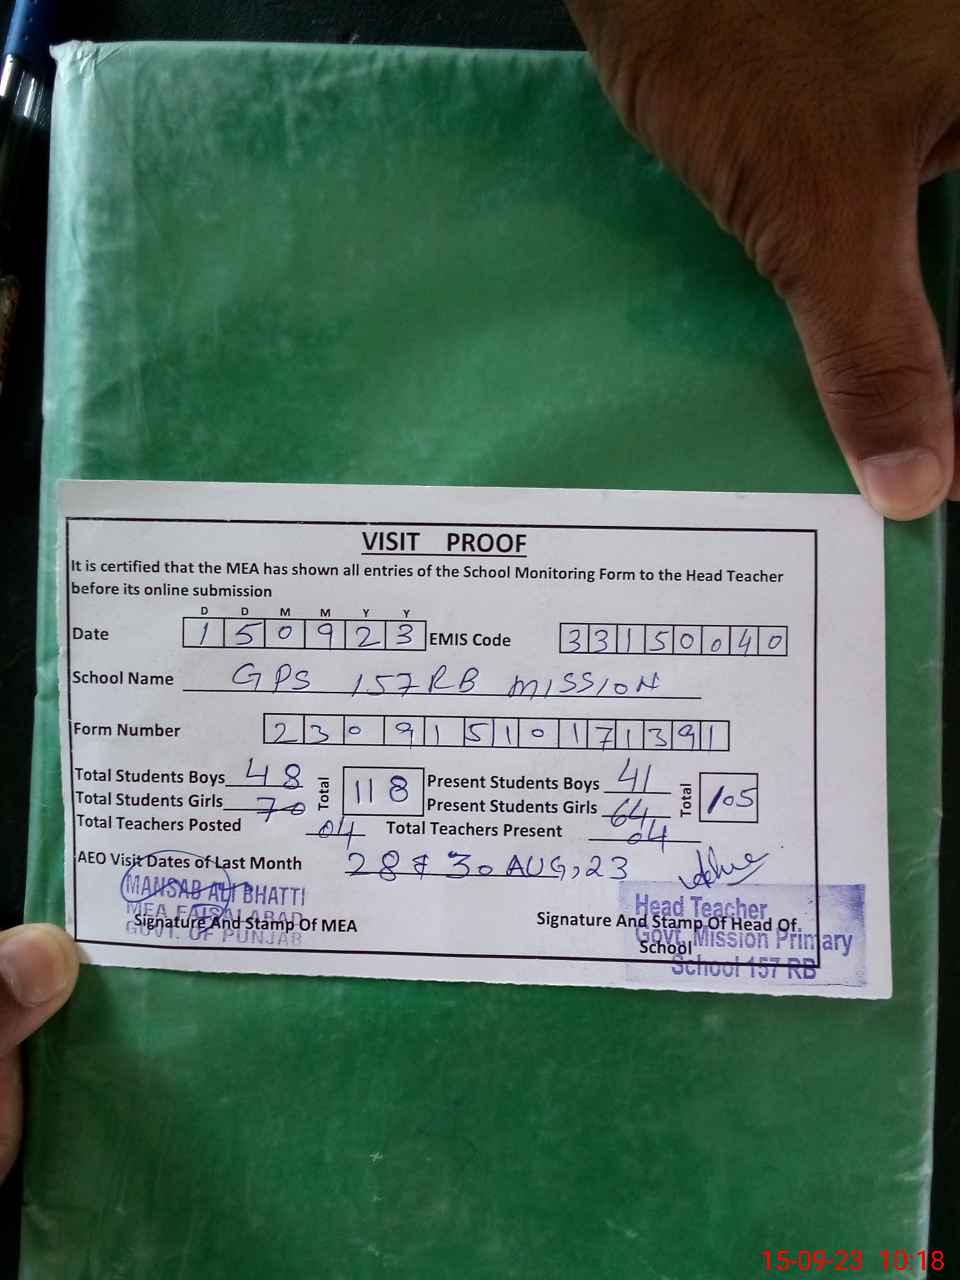 VISIT PROOF
It is certified that the MEA has shown all entries of the School Monitoring Form to the Head Teacher
before its online submission
D D M M Y Y
Date 1 5 0 9 2 3 EMIS Code 3 3 1 5 0 0 4 0
School Name GPS 157RB MISSION
Form Number 2 3 0 9 1 5 1 0 1 7 1 3 9 1
Total Students Boys 48 Total 118 Present Students Boys 41 Total 105
Total Students Girls 70 Present Students Girls 64
Total Teachers Posted 04 Total Teachers Present 04
AEO Visit Dates of Last Month 28 & 30 AUG, 23
MANSAB ALI BHATTI
MEA FAISALABAD
GOVT. OF PUNJAB
Signature And Stamp Of MEA
Signature And Stamp Of Head Of
School
Head Teacher
Govt. Mission Primary
School 157 RB
15-09-23 10:18